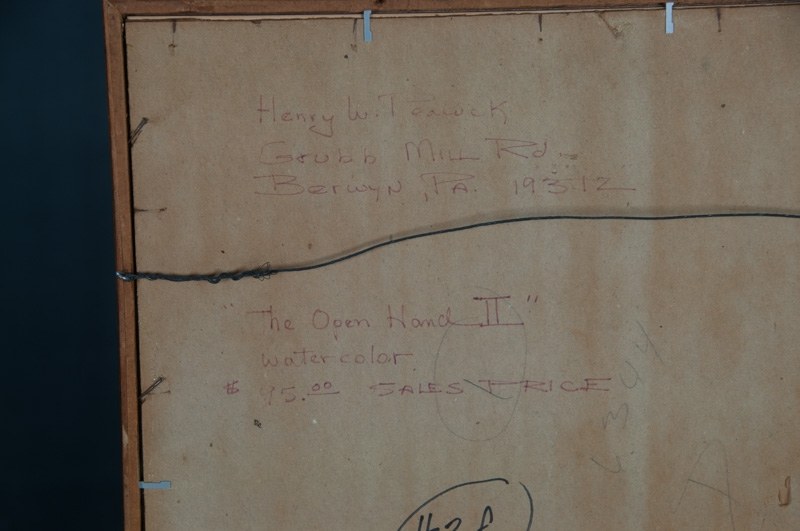 Henry W.
Grubb Mill Rd.
Berwyn, PA. 19312
"The Open Hand II"
watercolor
$ 95.00 SALES PRICE